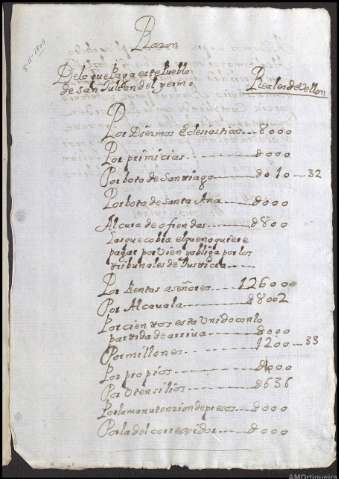 Razon
De lo que Paga este Pueblo
de San Julian del yermo
Reales de Vellon
Por Diezmos Eclesiasticos 8000
Por primicias 8000
Por boto de Santiago 8010 32
Por boto de Santa Ana 8000
Al cura de ofrendas 8800
los que cobra el que no quiere
pagar por vien y obliga por los
tribunales de Justicia
Por Rentas a señores 126000
Por Alcavala 8002
Por cientos esta Unido con la
partida de arriva 8000
Por millones 1200 33
Por propios 8000
Por Utensilios 8636
Por la manutenzion de presos 8000
Por la del correxidor 8000
AMOrtigueira